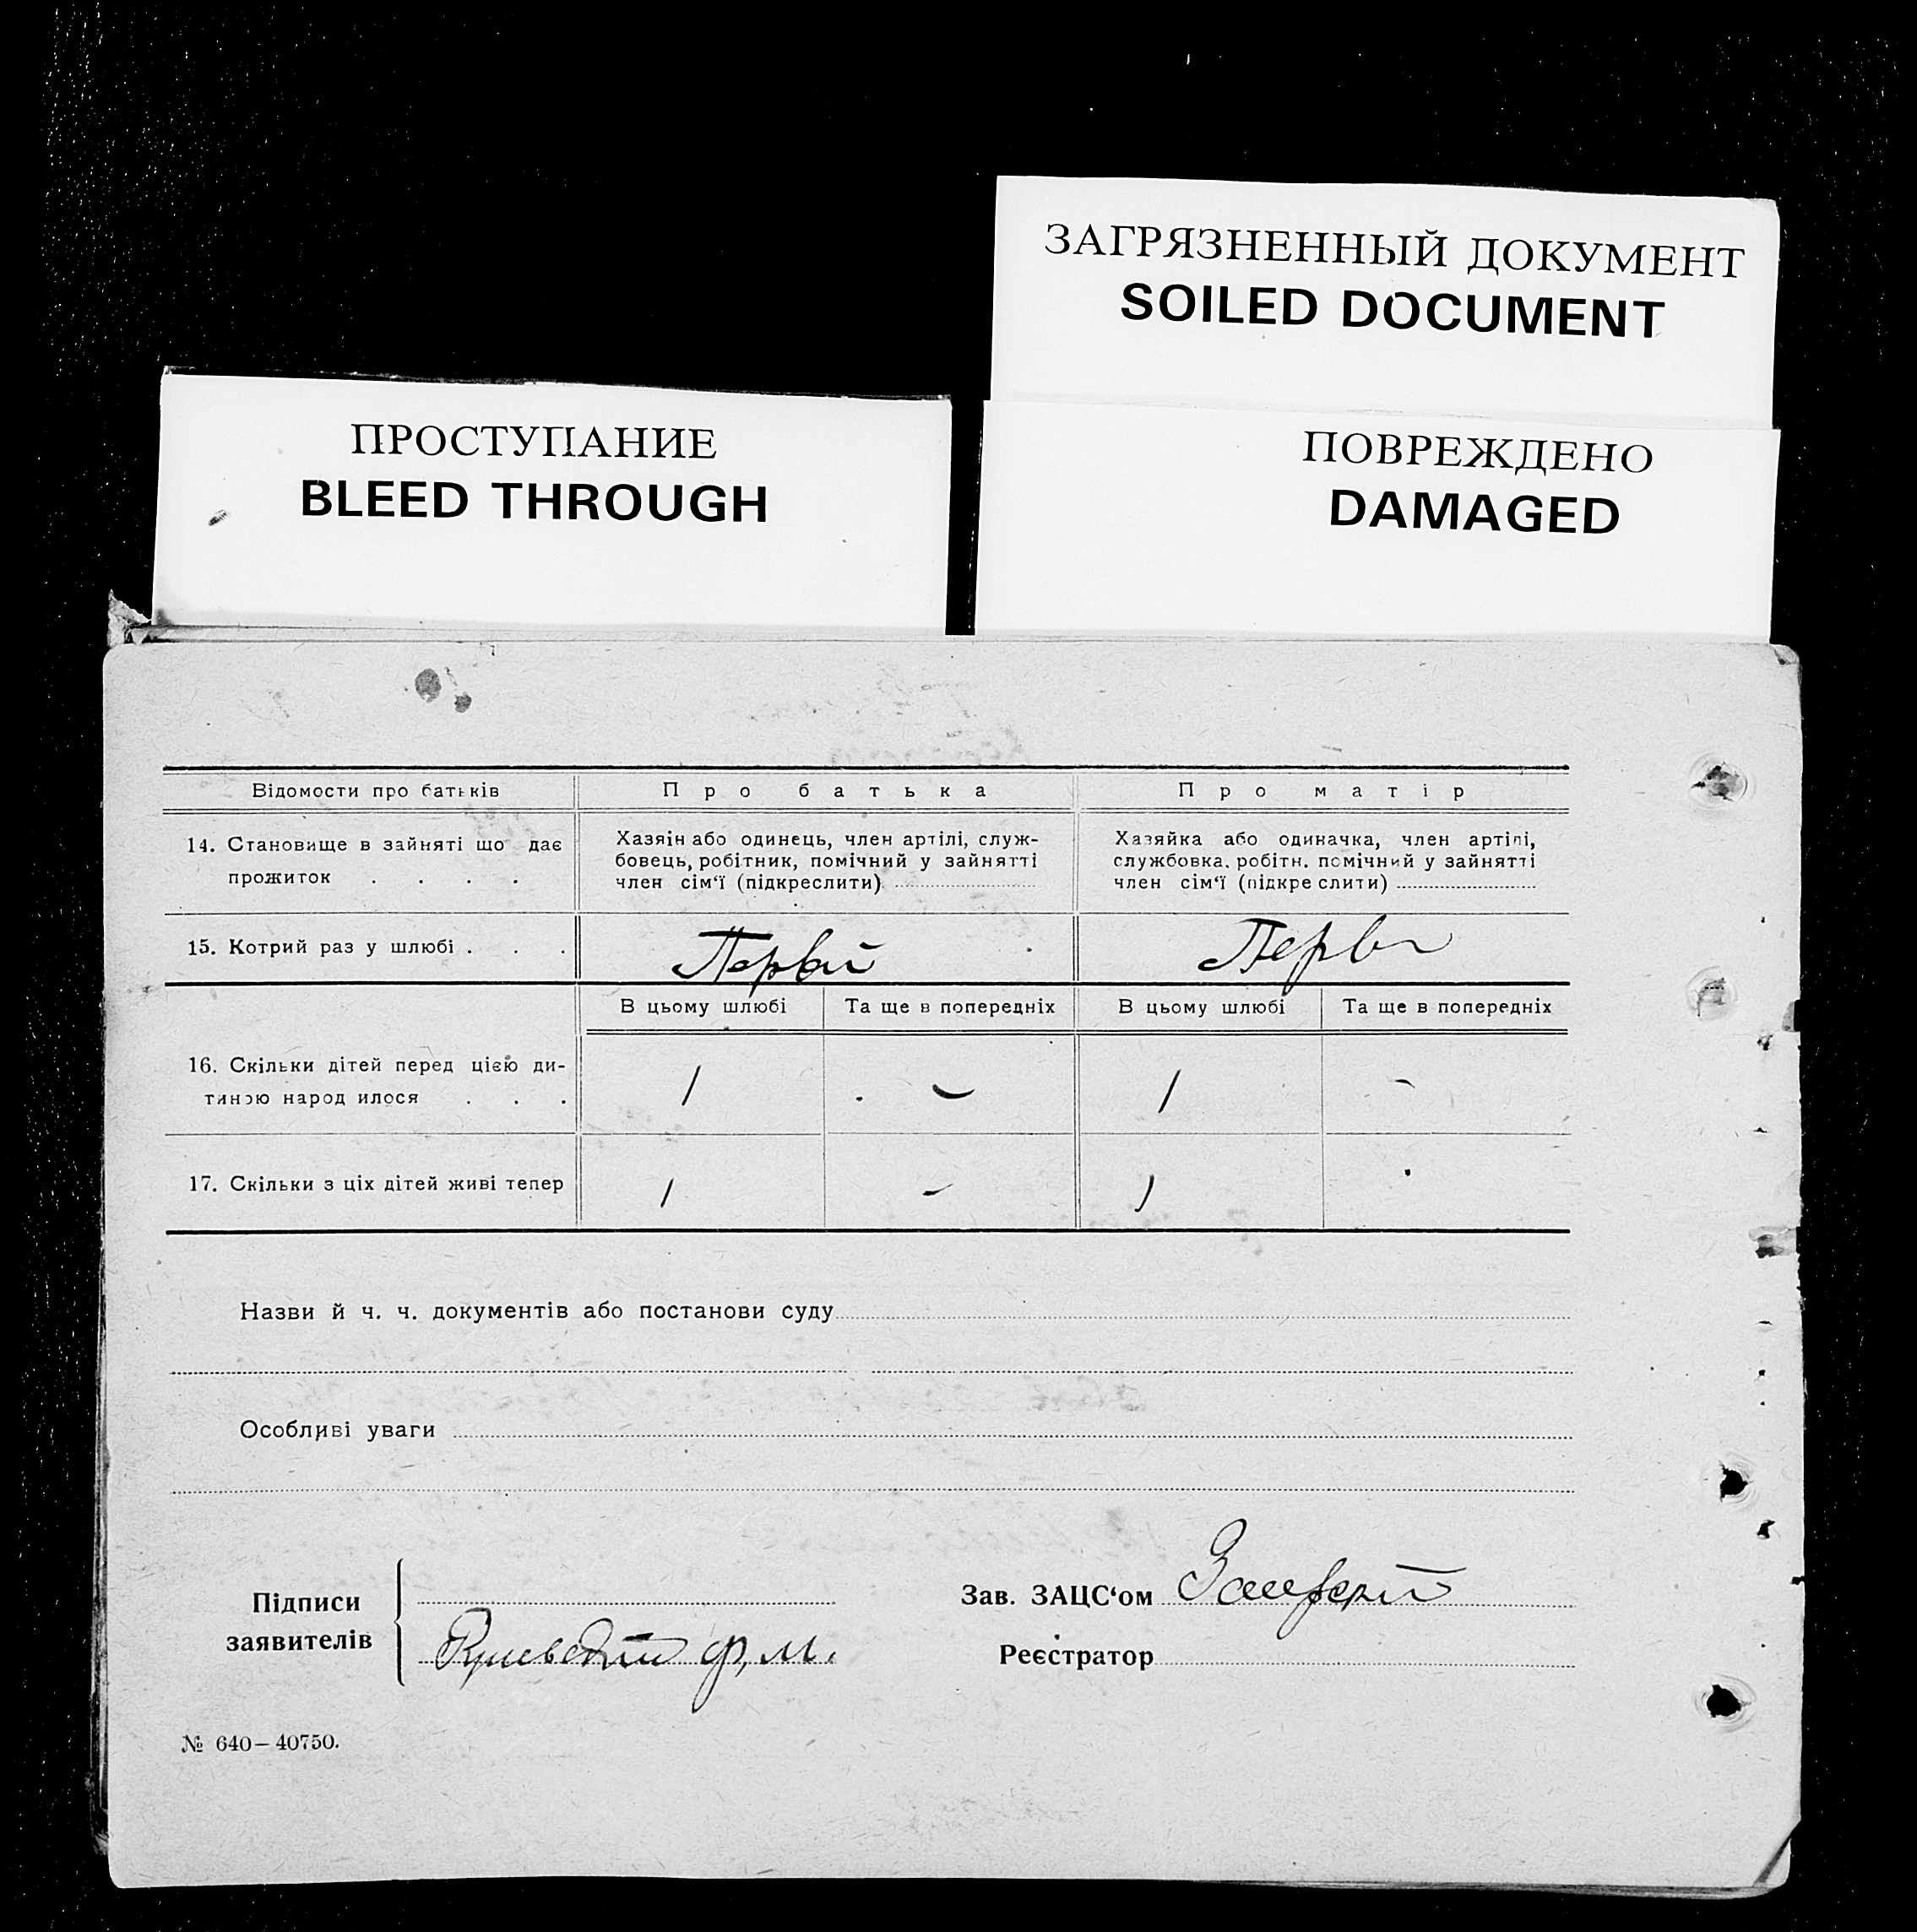 ЗАГРЯЗНЕННЫЙ ДОКУМЕНТ
SOILED DOCUMENT
ПРОСТУПАНИЕ
BLEED THROUGH
ПОВРЕЖДЕНО
DAMAGED
Відомости про батьків
Про батька
Про матір
14. Становище в зайняті що дає
прожиток . . . .
Хазяін або одинець, член артілі, служ-
бовець, робітник, помічний у зайнятті
член сім‘ї (підкреслити)
Хазяйка або одиначка, член артілі,
службовка. робітн. помічний у зайнятті
член сім‘ї (підкреслити)
15. Котрий раз у шлюбі . . .
Первий
Перви
В цьому шлюбі
Та ще в попередніх
В цьому шлюбі
Та ще в попередніх
16. Скільки дітей перед цією ди-
тиною народилося . . .
1
-
1
-
17. Скільки з ціх дітей живі тепер
1
-
1
Назви й ч. ч. документів або постанови суду
Особливі уваги
Підписи
заявителів
Ф. М.
Зав. ЗАЦС‘ом
Реєстратор
№ 640—40750.